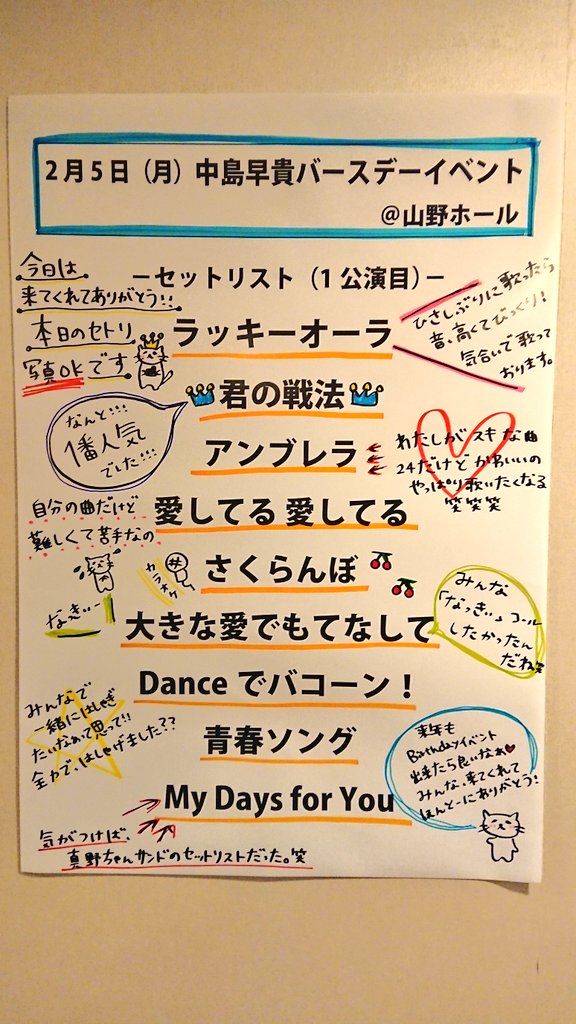 2月5日（月）中島早貴バースデーイベント
＠山野ホール
－セットリスト（1公演目）－
今日は
来てくれてありがとう!!
本日のセトリ
写真OKです
ラッキーオーラ
ひさしぶりに歌ったら
音、高くてびっくり!
気合いで歌って
おります。
君の戦法
なんと!!!
1番人気
でした!!!
アンブレラ
わたしがスキな曲
24だけどかわいいの
やっぱり歌いたくなる
笑笑笑
愛してる 愛してる
自分の曲だけど
難しくて苦手なの
さくらんぼ
カラオケ
大きな愛でもてなして
なっきぃー
みんな
「なっきぃ」コール
したかったん
だね笑
Dance でバコーン！
みんなで
一緒にはしゃぎ
たいなぁって思って!!
全力で、はしゃげました??
青春ソング
来年も
Birthdayイベント
出来たら良いなぁ♥
みんな、来てくれて
ほんとーにありがとう!
My Days for You
気がつけば、
真野ちゃんサンドのセットリストだった。笑